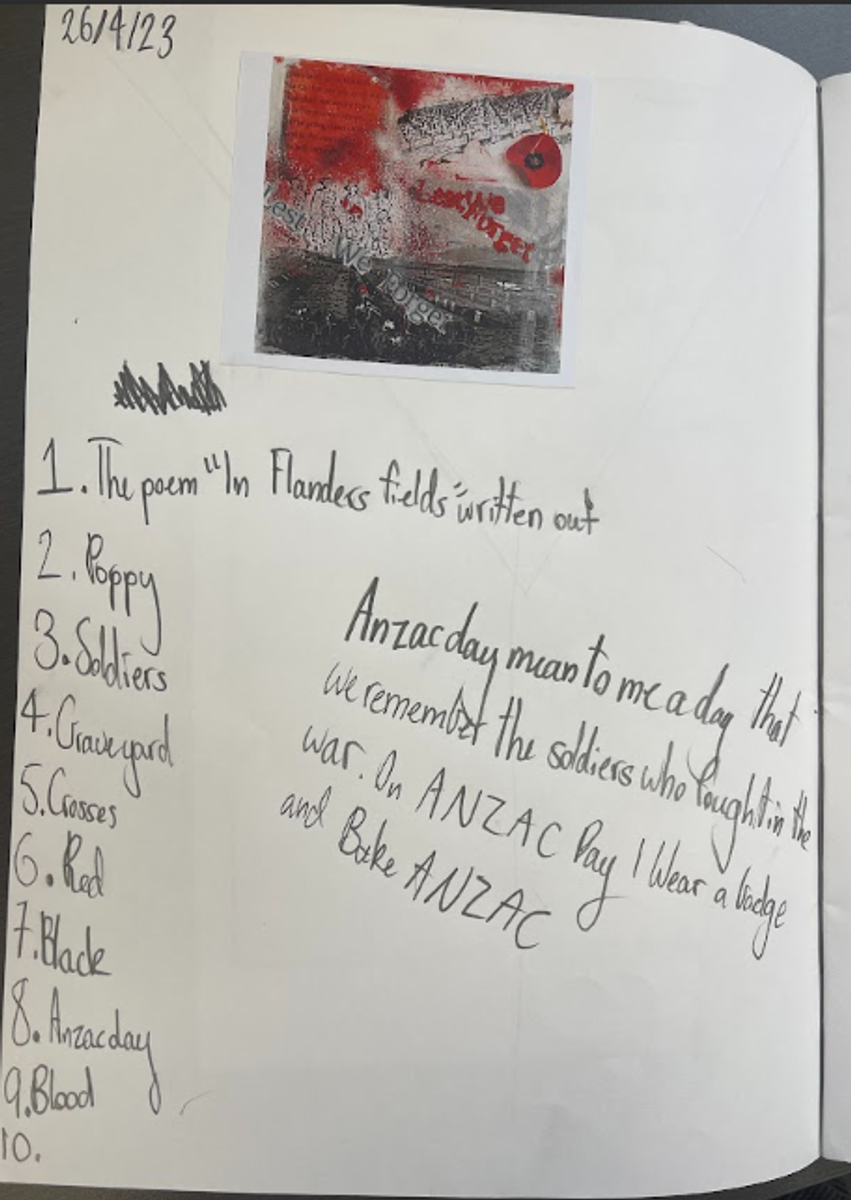 26/4/23
Lest We Forget
Lest We Forget
1. The poem "In Flanders fields" written out
2. Poppy
3. Soldiers
4. Graveyard
5. Crosses
6. Red
7. Black
8. Anzac day
9. Blood
10.
Anzac day mean to me a day that
we remember the soldiers who fought in the
war. On ANZAC Day I Wear a badge
and Bake ANZAC